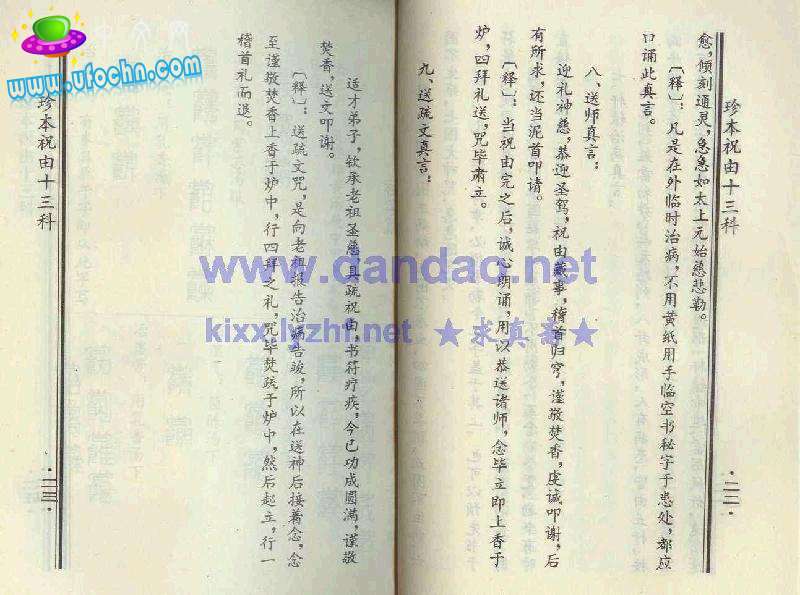 珍本祝由十三科
愈,倾刻通灵,急急如太上元始慈悲勒。
〔释〕:凡是在外临时治病,不用黄纸用手临空书秘字于患处,都应
口诵此真言。
八、送师真言:
迎礼神慈,恭迎圣驾,祝由蒇事,稽首归穹,谨敬焚香,虔诚叩谢,后
有所求,还当泥首叩请。
〔释〕:当祝由完之后,诚心朗诵,用以恭送诸师,念毕立即上香于
炉,四拜礼送,咒毕肃立。
九、送疏文真言:
·二二·
适才弟子,钦承老祖圣慈,具疏祝由,书符疗疾,今已功成圆满,谨敬
焚香,送文叩谢。
〔释〕:送疏文咒,是向老祖报告治病告竣,所以在送神后接着念,念
至谨敬焚香上香于炉中,行四拜之礼,咒毕焚疏于炉中,然后起立,行一
稽首礼而退。
珍本祝由十三科
·二三·
www.ufochn.com
www.dandao.net
kixx.lyzhf.net ★求真斋★